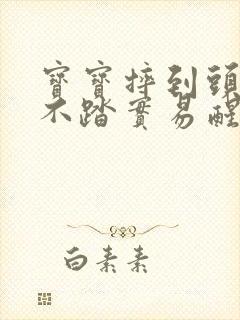 寶寶摔到頭
不踏實易醒
白素素